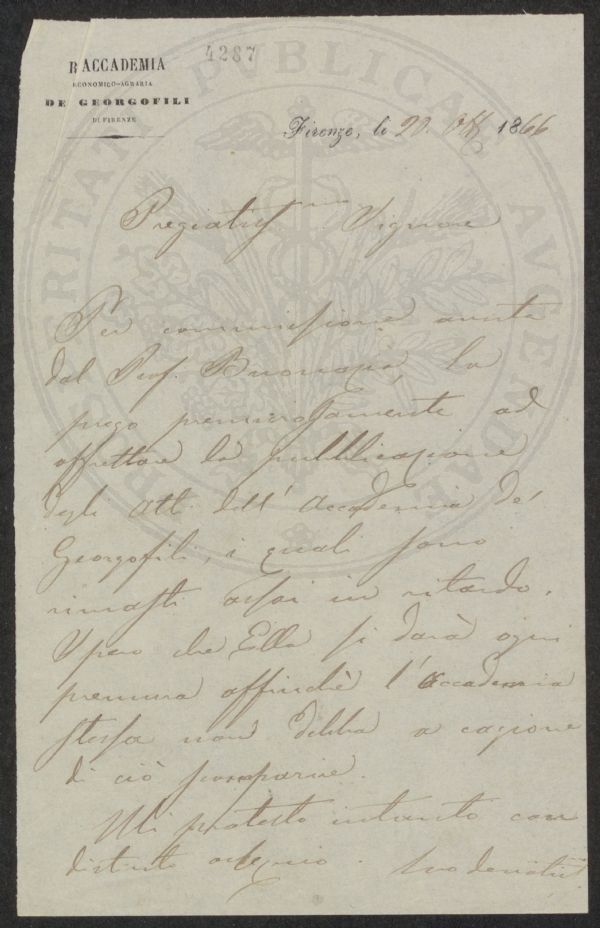 4287
R ACCADEMIA
ECONOMICO-AGRARIA
DE GEORGOFILI
DI FIRENZE
Firenze, lì 20 Ott 1866
PROSPERITATI PVBLICAE AVGENDAE
Pregiatiss.mo Signore
Per commissione avuta
dal Prof. la
prego premurosamente ad
affrettare la pubblicazione
degli Atti dell' Accademia de'
Georgofili, i quali sono
rimasti assai in ritardo.
Spero che Ella si darà ogni
premura affinchè l'Accademia
stessa non debba a cagione
di ciò scomparire.
Mi protesto intanto con
distinto ossequio. Suo